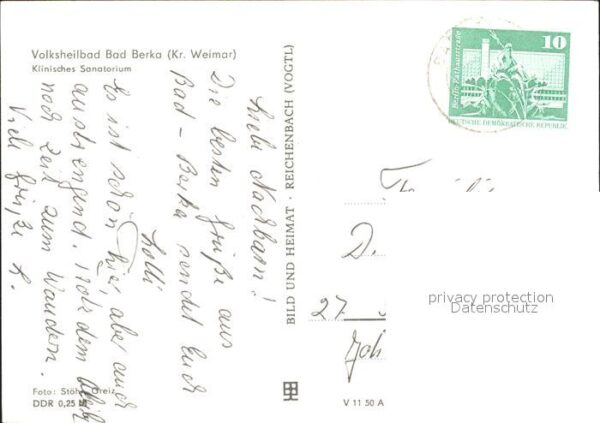 Volksheilbad Bad Berka (Kr. Weimar)
Klinisches Sanatorium
Liebe Nachbarn!
Die besten Grüße aus
Bad-Berka sendet Euch
Lolli
Es ist schön hier, aber auch
anstrengend. Trotz dem
noch Zeit zum Wandern.
Viele Grüße L.
Foto: Stöhr, Greiz
DDR 0,25 M
BILD UND HEIMAT · REICHENBACH (VOGTL)
V 11 50 A
10
Berlin, Rathausstraße
DEUTSCHE DEMOKRATISCHE REPUBLIK
D.
27
Joh
privacy protection
Datenschutz